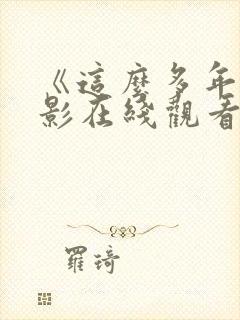 《這麼多年
影在綫觀看
羅琦